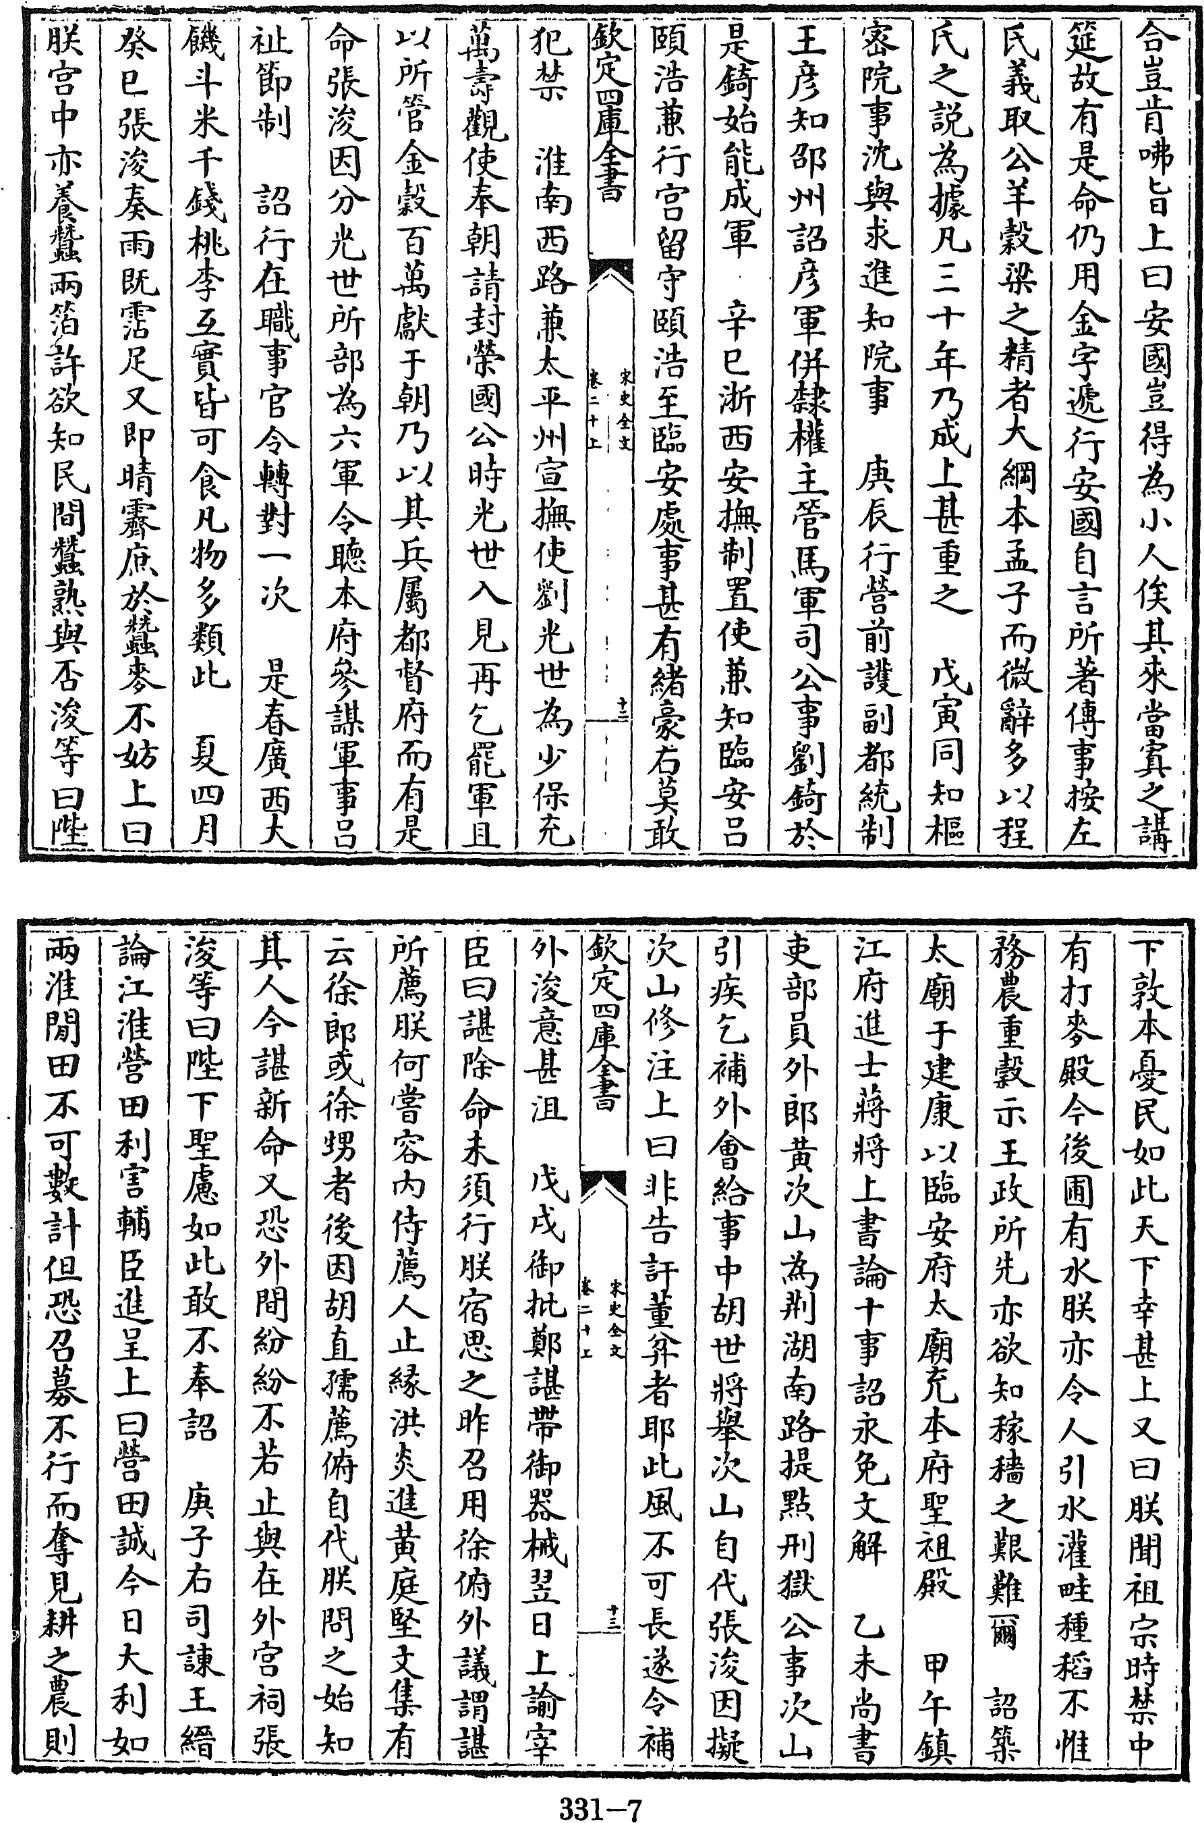 合豈肯咈旨上曰安國豈得為小人俟其來當寘之講
筵故有是命仍用金字遞行安國自言所著傳事按左
氏義取公羊穀梁之精者大綱本孟子而微辭多以程
氏之説為據凡三十年乃成上甚重之　戊寅同知樞
密院事沈與求進知院事　庚辰行營前護副都統制
王彦知邵州詔彦軍併隸權主管馬軍司公事劉錡於
是錡始能成軍　辛巳浙西安撫制置使兼知臨安吕
頤浩兼行宫留守頤浩至臨安處事甚有緒豪右莫敢
欽定四庫全書
宋史全文
卷二十上
十二
犯禁　淮南西路兼太平州宣撫使劉光世為少保充
萬壽觀使奉朝請封榮國公時光世入見再乞罷軍且
以所管金穀百萬獻于朝乃以其兵屬都督府而有是
命張浚因分光世所部為六軍令聽本府參謀軍事吕
祉節制　詔行在職事官令轉對一次　是春廣西大
饑斗米千錢桃李互實皆可食凡物多類此　夏四月
癸巳張浚奏雨既霑足又即晴霽庶於蠶麥不妨上曰
朕宫中亦養蠶兩箔許欲知民間蠶熟與否浚等曰陛
下敦本憂民如此天下幸甚上又曰朕聞祖宗時禁中
有打麥殿今後圃有水朕亦令人引水灌畦種稻不惟
務農重穀示王政所先亦欲知稼穡之艱難爾　詔築
太廟于建康以臨安府太廟充本府聖祖殿　甲午鎮
江府進士蔣將上書論十事詔永免文解　乙未尚書
吏部員外郎黄次山為荆湖南路提點刑獄公事次山
引疾乞補外會給事中胡世將舉次山自代張浚因擬
次山修注上曰非告訐董弅者耶此風不可長遂令補
欽定四庫全書
宋史全文
卷二十上
十三
外浚意甚沮　戊戌御批鄭諶帶御器械翌日上諭宰
臣曰諶除命未須行朕宿思之昨召用徐俯外議謂諶
所薦朕何嘗容内侍薦人止縁洪炎進黄庭堅文集有
云徐郎或徐甥者後因胡直孺薦俯自代朕問之始知
其人今諶新命又恐外間紛紛不若止與在外宫祠張
浚等曰陛下聖慮如此敢不奉詔　庚子右司諫王縉
論江淮營田利害輔臣進呈上曰營田誠今日大利如
兩淮閒田不可數計但恐召募不行而奪見耕之農則
331-7